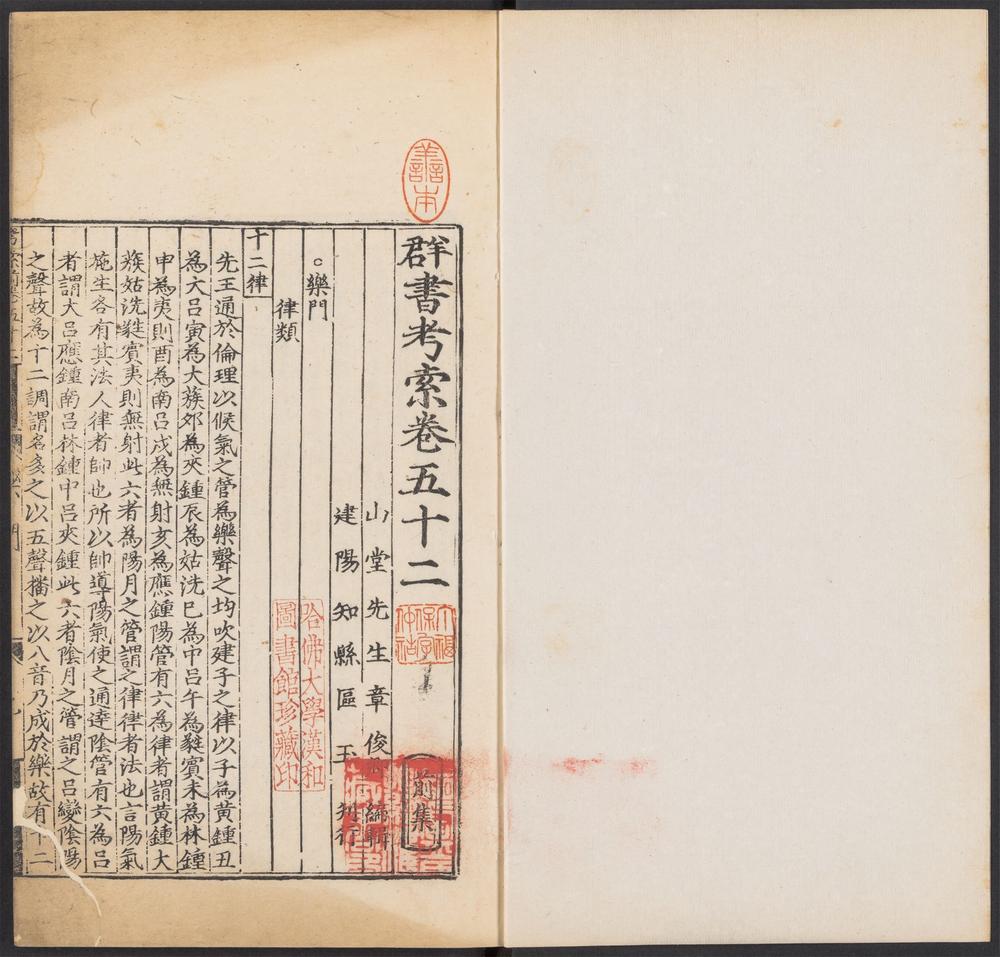 善本
群書考索卷五十二
前集
山堂先生章俊 編輯
建陽知縣區玉刊行
哈佛大學漢和
圖書館珍藏印
樂門
律類
十二律
先王通於倫理以候氣之管為樂聲之均吹建子之律以子為黃鍾丑
為大呂寅為大蔟卯為夾鍾辰為姑洗巳為中呂午為蕤賓未為林鍾
申為夷則酉為南呂戌為無射亥為應鍾陽管有六為律者謂黃鍾大
蔟姑洗蕤賓夷則無射此六者為陽月之管謂之律律者法也言陽氣
施生各有其法人律者帥也所以帥導陽氣使之通達陰管有六為呂
者謂大呂應鍾南呂林鍾中呂夾鍾此六者陰月之管謂之呂變陰陽
之聲故為十二調謂各文之以五聲播之以八音乃成於樂故有十二